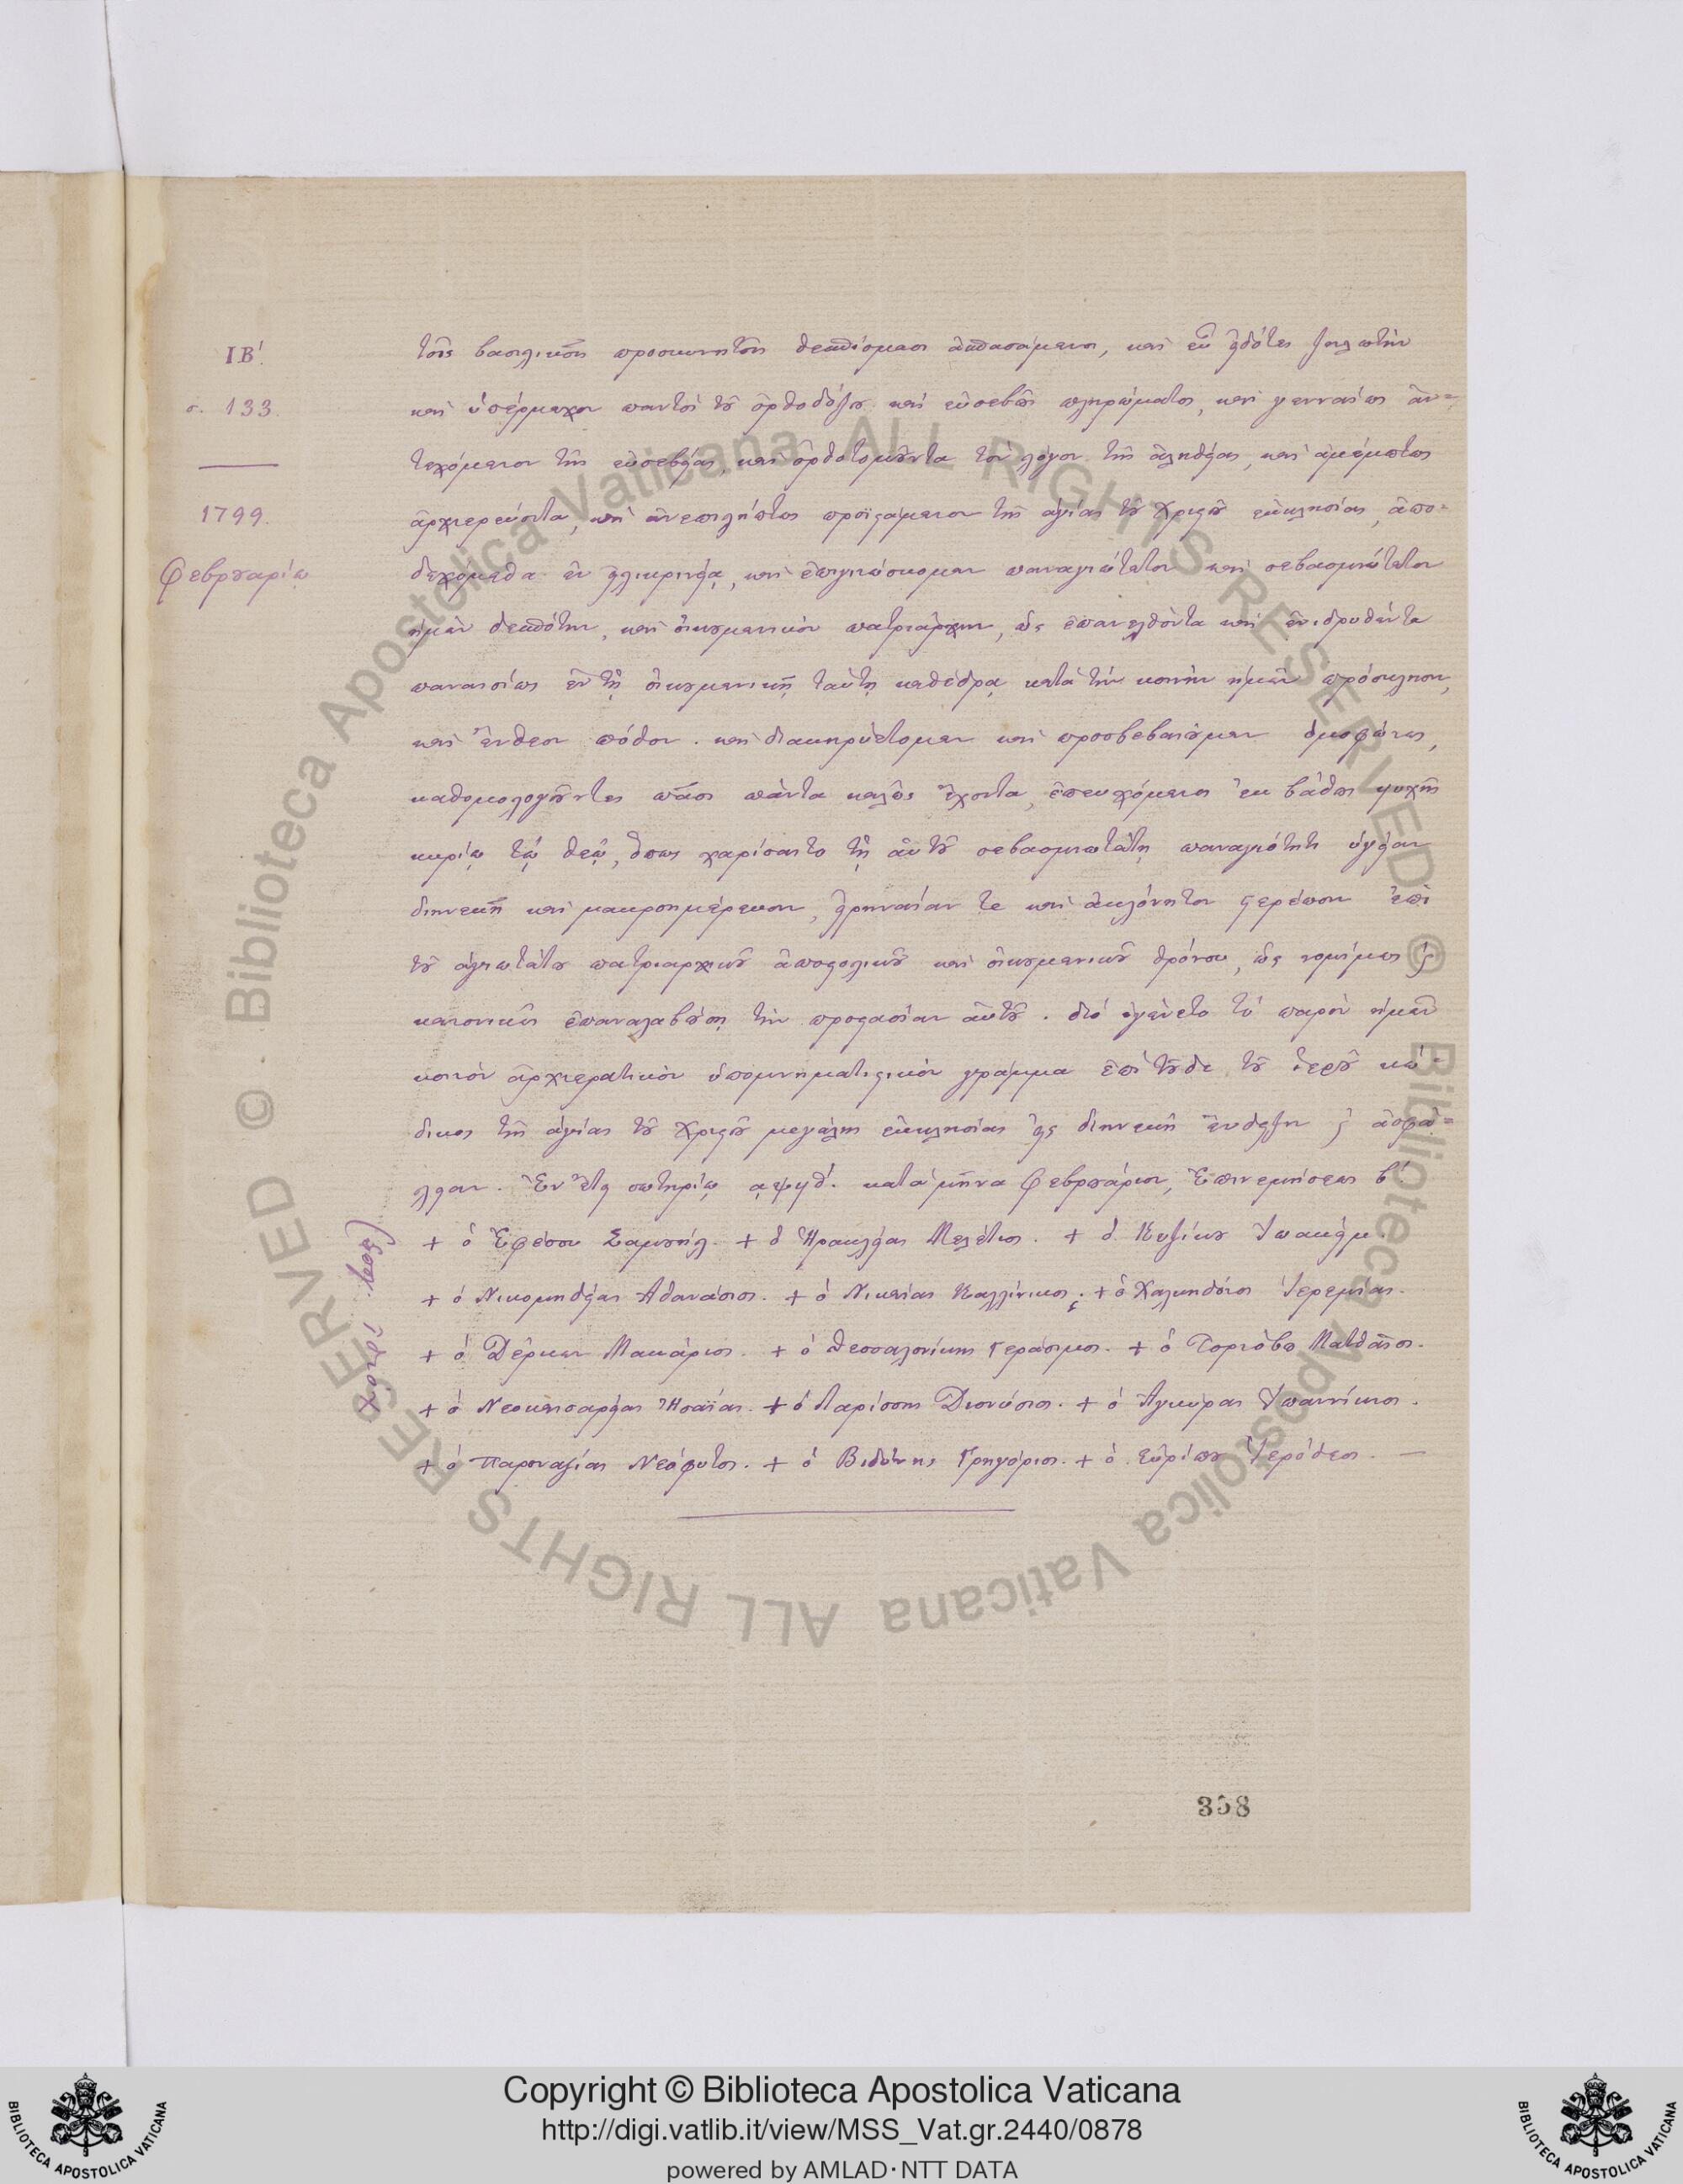 ΙΒ΄.
σ. 133.
1799.
Φεβρουαρίῳ
τοῖς βασιλικοῖς προσκυνητοῖς θεσπίσμασι ἀσπασάμενοι, καὶ εὖ εἰδότες ζηλωτὴν
καὶ ὑπέρμαχον παντὸς τοῦ ὀρθοδόξου καὶ εὐσεβοῦς πληρώματος, καὶ γενναίως ἀν-
τεχόμενον τῆς εὐσεβείας, καὶ ὀρθοτομοῦντα τὸν λόγον τῆς ἀληθείας, καὶ ἀμέμπτως
ἀρχιερεύοντα, καὶ ἀνεπιλήπτως προϊστάμενον τῆς ἁγίας τοῦ Χριστοῦ ἐκκλησίας, ἀπο-
δεχόμεθα ἐν εἰλικρινείᾳ, καὶ ἐπιγινώσκομεν παναγιώτατον καὶ σεβασμιώτατον
ἡμῶν δεσπότην, καὶ οἰκουμενικὸν πατριάρχην, ὡς ἐπανελθόντα καὶ ἐνιδρυθέντα
παναισίως ἐν τῇ οἰκουμενικῇ ταύτῃ καθέδρᾳ κατὰ τὴν κοινὴν ἡμῶν πρόσκλησιν,
καὶ ἔνθεον πόθον. καὶ διακηρύττομεν καὶ προσβεβαιοῦμεν ὁμοφώνως,
καθομολογοῦντες πᾶσι πάντα καλῶς ἔχοντα, ἐπευχόμενοι ἐκ βάθους ψυχῆς
κυρίῳ τῷ θεῷ, ὅπως χαρίσαιτο τῇ αὐτοῦ σεβασμιωτάτῃ παναγιότητι ὑγείαν
διηνεκῆ καὶ μακροημέρευσιν, εἰρηναίαν τε καὶ ἀκλόνητον στερέωσιν ἐπὶ
τοῦ ἁγιωτάτου πατριαρχικοῦ ἀποστολικοῦ καὶ οἰκουμενικοῦ θρόνου, ὡς νομίμως ϗ
κανονικῶς ἐπαναλαβούσῃ τὴν προστασίαν αὐτοῦ. διὸ ἐγένετο τὸ παρὸν ἡμῶν
κοινὸν ἀρχιερατικὸν ὑπομνηματιστικὸν γράμμα ἐπὶ τοῦδε τοῦ ἱεροῦ κώ-
δικος τῆς ἁγίας τοῦ Χριστοῦ μεγάλης ἐκκλησίας εἰς διηνεκῆ ἔνδειξιν ϗ ἀσφά-
λειαν. Ἐν ἔτει σωτηρίῳ αψϟθ΄. κατὰ μῆνα Φεβρουάριον, Ἐπινεμήσεως β΄.
+ ὁ Ἐφέσου Σαμουήλ. + ὁ Ἡρακλείας Μελέτιος. + ὁ Κυζίκου Ἰωακείμ.
+ ὁ Νικομηδείας Ἀθανάσιος. + ὁ Νικαίας Καλλίνικος. + ὁ Χαλκηδόνος Ἱερεμίας.
+ ὁ Δέρκων Μακάριος. + ὁ Θεσσαλονίκης Γεράσιμος. + ὁ Τορνόβου Ματθαῖος.
+ ὁ Νεοκαισαρείας Ἡσαΐας. + ὁ Λαρίσσης Διονύσιος. + ὁ Ἀγκύρας Ἰωαννίκιος.
+ ὁ Παροναξίας Νεόφυτος. + ὁ Βιδύνης Γρηγόριος. + ὁ Εὐρίπου Ἱερόθεος.
358
Copyright © Biblioteca Apostolica Vaticana
http://digi.vatlib.it/view/MSS_Vat.gr.2440/0878
powered by AMLAD·NTT DATA